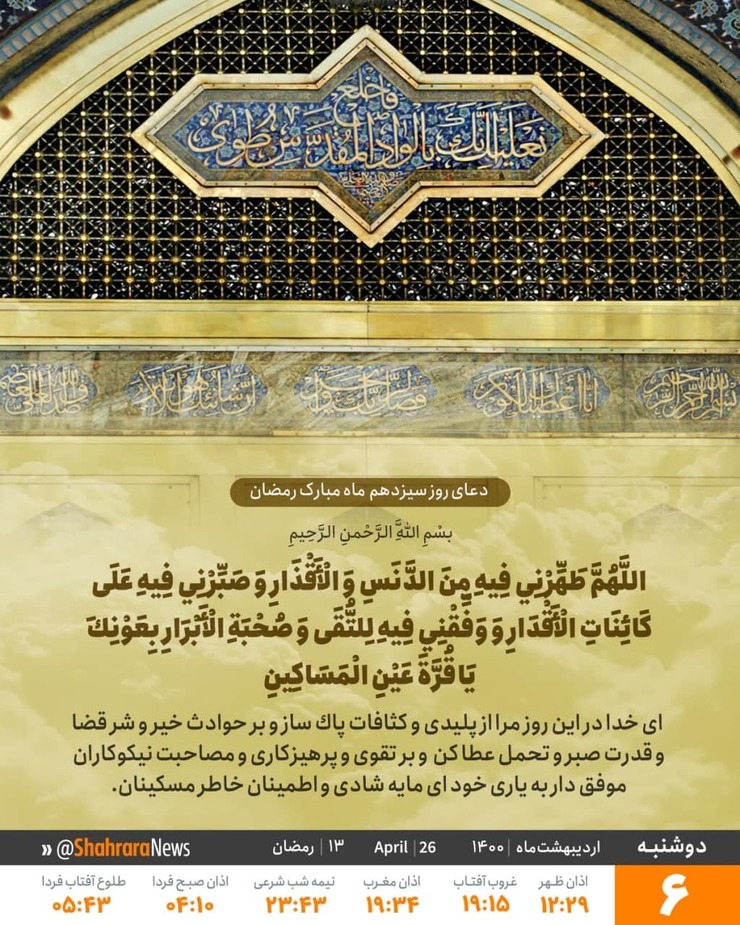 فاخلع
نعلیک انک بالواد المقدس طوی
بسم الله الرحمن الرحیم
انا اعطیناک الکوثر
فصل لربک وانحر
ان شانئک هو الابتر
دعای روز سیزدهم ماه مبارک رمضان
بسْمِ اللهِ الرَّحْمنِ الرَّحِیمِ
اللَّهُمَّ طَهِّرْنِي فِيهِ مِنَ الدَّنَسِ وَ الْأَقْذَارِ وَ صَبِّرْنِي فِيهِ عَلَى
كَائِنَاتِ الْأَقْدَارِ وَ وَفِّقْنِي فِيهِ لِلتُّقَى وَ صُحْبَةِ الْأَبْرَارِ بِعَوْنِكَ
يَا قُرَّةَ عَيْنِ الْمَسَاكِينِ
ای خدا در این روز مرا از پلیدی و کثافات پاك ساز و بر حوادث خیر و شر قضا
و قدرت صبر و تحمل عطا کن و بر تقوی و پرهیزکاری و مصاحبت نیکوکاران
موفق دار به یاری خود ای مایه شادی و اطمینان خاطر مسکینان.
دوشنبه اردیبهشت‌ماه | ۱۴۰۰ April | 26 ۱۳ | رمضان @ShahraraNews »
۶
اذان ظهر غروب آفتاب اذان مغرب نیمه شب شرعی اذان صبح فردا طلوع آفتاب فردا
۱۲:۲۹ ۱۹:۱۵ ۱۹:۳۴ ۲۳:۴۳ ۰۴:۱۰ ۰۵:۴۳